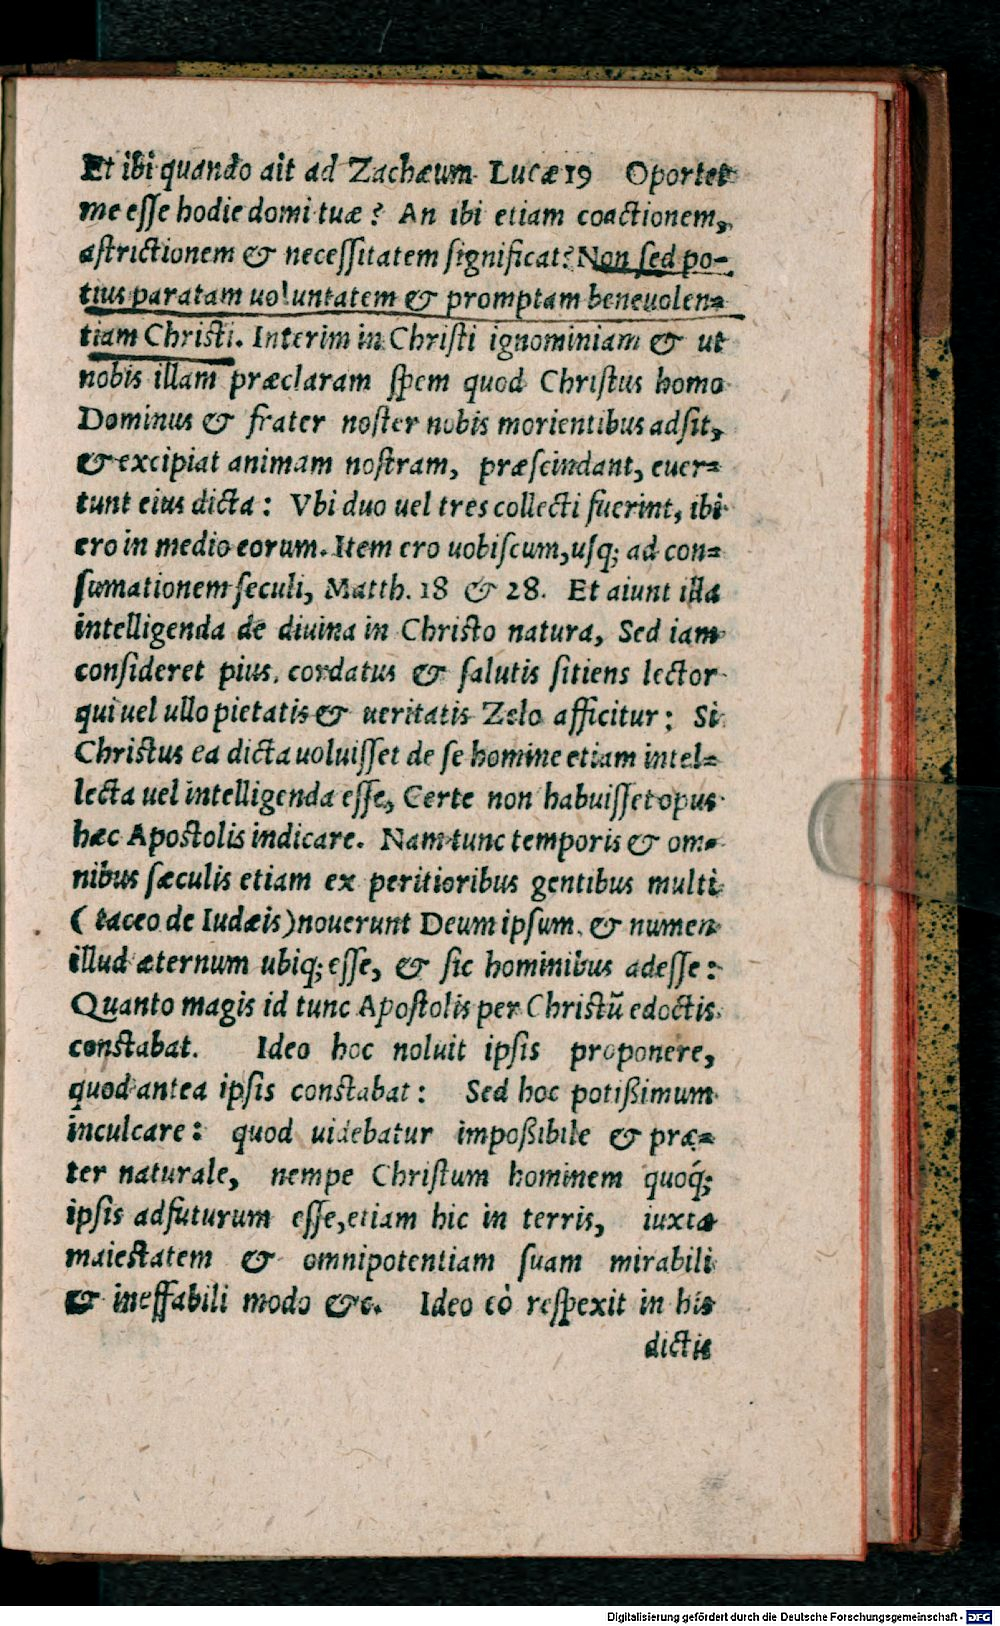 Et ibi quando ait ad Zachæum Lucæ 19 Oportet
me esse hodie domi tuæ? An ibi etiam coactionem,
astrictionem & necessitatem significat? Non sed po-
tius paratam uoluntatem & promptam beneuolen-
tiam Christi. Interim in Christi ignominiam & ut
nobis illam præclaram spem quod Christus homo
Dominus & frater noster nobis morientibus adsit,
& excipiat animam nostram, præscindant, euer-
tunt eius dicta: Vbi duo uel tres collecti fuerint, ibi
ero in medio eorum. Item ero uobiscum, usq; ad con-
sumationem seculi, Matth. 18 & 28. Et aiunt illa
intelligenda de diuina in Christo natura, Sed iam
consideret pius, cordatus & salutis sitiens lector
qui uel ullo pietatis & ueritatis Zelo afficitur: Si
Christus ea dicta uoluisset de se homine etiam intel-
lecta uel intelligenda esse, Certe non habuisset opus
hæc Apostolis indicare. Nam tunc temporis & om-
nibus sæculis etiam ex peritioribus gentibus multi
(taceo de Iudæis) nouerunt Deum ipsum, & numen
illud æternum ubiq; esse, & sic hominibus adesse:
Quanto magis id tunc Apostolis per Christũ edoctis
constabat. Ideo hoc noluit ipsis proponere,
quod antea ipsis constabat: Sed hoc potißimum
inculcare: quod uidebatur impoßibile & præ-
ter naturale, nempe Christum hominem quoq́;
ipsis adfuturum esse, etiam hic in terris, iuxta
maiestatem & omnipotentiam suam mirabili
& ineffabili modo &c. Ideo eò respexit in his
dictis
Digitalisierung gefördert durch die Deutsche Forschungsgemeinschaft - DFG